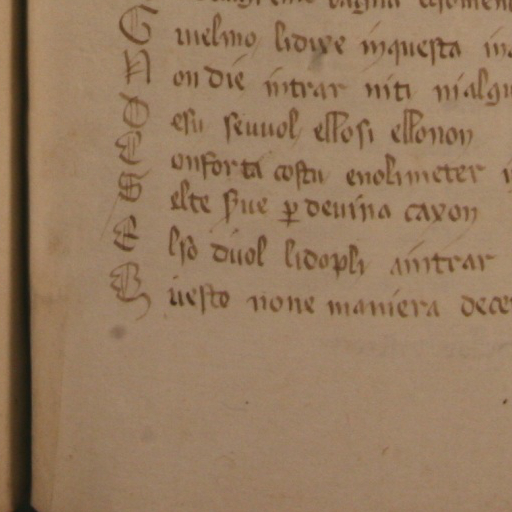 Guielmo lidixe inquesta in
Non die intrar niti nialgu
Desu seuuol ellosi ellonon
Conforta costu enolimeter i
Selte serue per deuina caxon
Elso duol lidopli anitrar
Questo none maniera dece